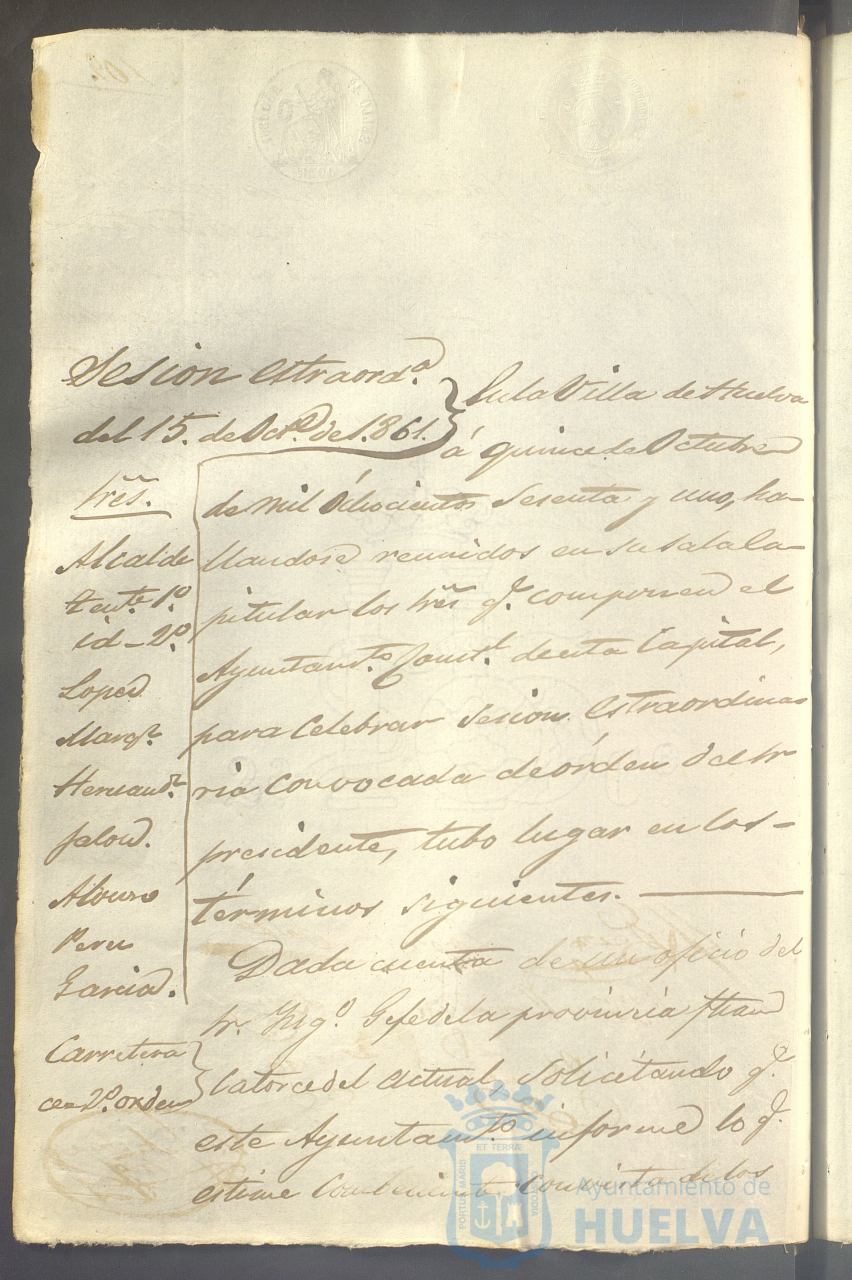 Sesion estraord.ª
del 15. de Oct.e de 1.861.
Sres.
Alcalde
tent.e 1.º
id_ 2.º
Lopez
Marq.z
Hernand.z
Jalon.
Alonso
Perez
Garcia.
Carretera
de 2.º orden
En la Villa de Huelva
á quince de Octubre
de mil ochocientos sesenta y uno, ha-
llandose reunidos en su Sala Ca-
pitular los Sres q.e componen el
Ayuntam.to Const.l de esta Capital,
para celebrar sesion estraordina-
ria convocada de órden del Sr
presidente, tubo lugar en los-
términos siguientes.
Dada cuenta de un oficio del
Sr. Ing.o Gefe de la provincia
catorce del actual, solicitando q.e
este Ayuntam.to informe lo q.e
estime conveniente con vista de los
PORTUS MARIS
ET TERRÆ
CUSTODIA
Ayuntamiento de
HUELVA